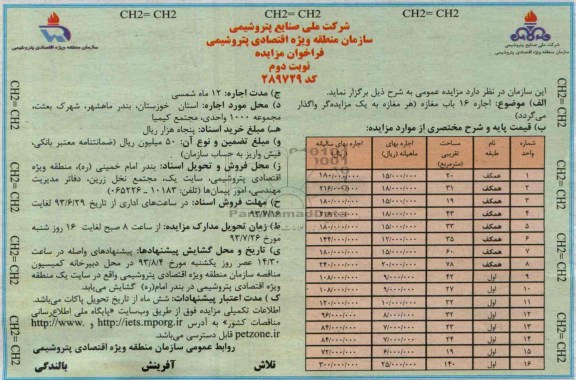 CH2= CH2 CH2= CH2 CH2= CH2
شرکت ملی صنایع پتروشیمی
سازمان منطقه ویژه اقتصادی پتروشیمی
فراخوان مزایده
نوبت دوم
کد ۲۸۹۷۲۹
شرکت ملی صنایع پتروشیمی
سازمان منطقه ویژه اقتصادی پتروشیمی
این سازمان در نظر دارد مزایده عمومی به شرح ذیل برگزار نماید.
الف) موضوع: اجاره ۱۶ باب مغازه (هر مغازه به یک مزایده‌گر واگذار
می‌گردد)
ب) قیمت پایه و شرح مختصری از موارد مزایده:
شماره واحد نام طبقه مساحت تقریبی (مترمربع) اجاره بهای ماهیانه (ریال) اجاره بهای سالیانه (ریال)
۱ همکف ۲۰ ۱۵/۰۰۰/۰۰۰ ۱۸۰/۰۰۰/۰۰۰
۲ همکف ۳۱ ۱۸/۰۰۰/۰۰۰ ۲۱۶/۰۰۰/۰۰۰
۳ همکف ۱۹ ۱۵/۰۰۰/۰۰۰ ۱۸۰/۰۰۰/۰۰۰
۴ همکف ۴۳ ۱۸/۰۰۰/۰۰۰
۵ همکف ۳۳ ۱۵/۰۰۰/۰۰۰ ۱۸۰/۰۰۰/۰۰۰
۶ همکف ۳۵ ۱۲/۰۰۰/۰۰۰ ۱۴۴/۰۰۰/۰۰۰
۷ همکف ۶۰ ۱۵/۰۰۰/۰۰۰ ۱۸۰/۰۰۰/۰۰۰
۸ همکف ۷۸ ۲۰/۰۰۰/۰۰۰ ۲۴۰/۰۰۰/۰۰۰
۹ اول ۴۲ ۹/۰۰۰/۰۰۰ ۱۰۸/۰۰۰/۰۰۰
۱۰ اول ۲۷ ۹/۰۰۰/۰۰۰ ۱۰۸/۰۰۰/۰۰۰
۱۱ اول ۳۲ ۱۰/۰۰۰/۰۰۰ ۱۲۰/۰۰۰/۰۰۰
۱۲ اول ۳۲ ۸/۰۰۰/۰۰۰ ۹۶/۰۰۰/۰۰۰
۱۳ اول ۲۳ ۷/۰۰۰/۰۰۰ ۸۴/۰۰۰/۰۰۰
۱۴ اول ۲۴ ۷/۰۰۰/۰۰۰ ۸۴/۰۰۰/۰۰۰
۱۵ اول ۱۹ ۶/۰۰۰/۰۰۰ ۷۲/۰۰۰/۰۰۰
۱۶ اول ۱۴۰ ۲۵/۰۰۰/۰۰۰ ۳۰۰/۰۰۰/۰۰۰
ج) مدت اجاره: ۱۲ ماه شمسی
د) محل مورد اجاره: استان خوزستان، بندر ماهشهر، شهرک بعثت،
مجموعه ۱۰۰۰ واحدی، مجتمع کیمیا
هـ) مبلغ خرید اسناد: پنجاه هزار ریال
و) مبلغ تضمین و نوع آن: ۵۰ میلیون ریال (ضمانتنامه معتبر بانکی،
فیش واریز به حساب سازمان)
ز) محل فروش و تحویل اسناد: بندر امام خمینی (ره)، منطقه ویژه
اقتصادی پتروشیمی، سایت یک، مجتمع نخل زرین، دفاتر مدیریت
مهندسی، امور پیمان‌ها (تلفن: ۱۰۱۸۳ - ۰۶۵۲۲۶)
ح) مهلت فروش اسناد: در ساعت‌های اداری از تاریخ ۹۳/۶/۲۹ لغایت
ط) زمان تحویل مدارک مزایده: از ساعت ۸ صبح لغایت ۱۶ روز شنبه
مورخ ۹۳/۷/۲۶
ی) تاریخ و محل گشایش پیشنهادها: پیشنهادهای واصله در ساعت
۱۴/۳۰ عصر روز یکشنبه مورخ ۹۳/۸/۴ در محل دبیرخانه کمیسیون
مناقصه سازمان منطقه ویژه اقتصادی پتروشیمی واقع در سایت یک منطقه
ویژه اقتصادی پتروشیمی در بندر امام(ره) گشایش می‌یابد.
ک) مدت اعتبار پیشنهادات: شش ماه از تاریخ تحویل پاکات می‌باشد.
اطلاعات تکمیلی مزایده فوق از طریق وب‌سایت «پایگاه ملی اطلاع‌رسانی
مناقصات کشور» به آدرس http://iets.mporg.ir و http://www.
petzone.ir قابل دسترسی می‌باشد.
روابط عمومی سازمان منطقه ویژه اقتصادی پتروشیمی
تلاش آفرینش بالندگی
CH2= CH2 CH2= CH2 CH2= CH2